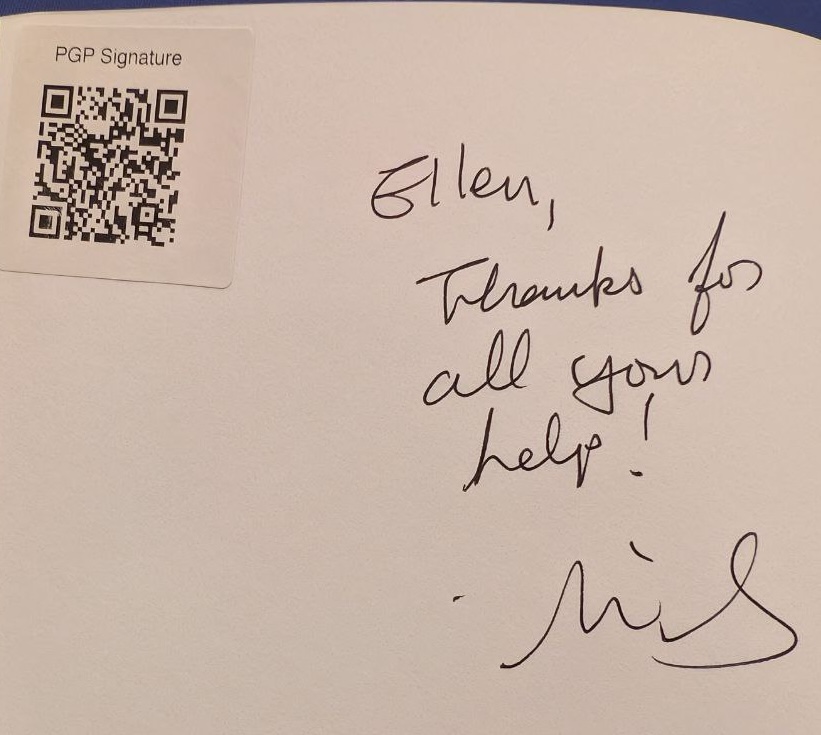 PGP Signature
Ellen,
Thanks for
all your
help!